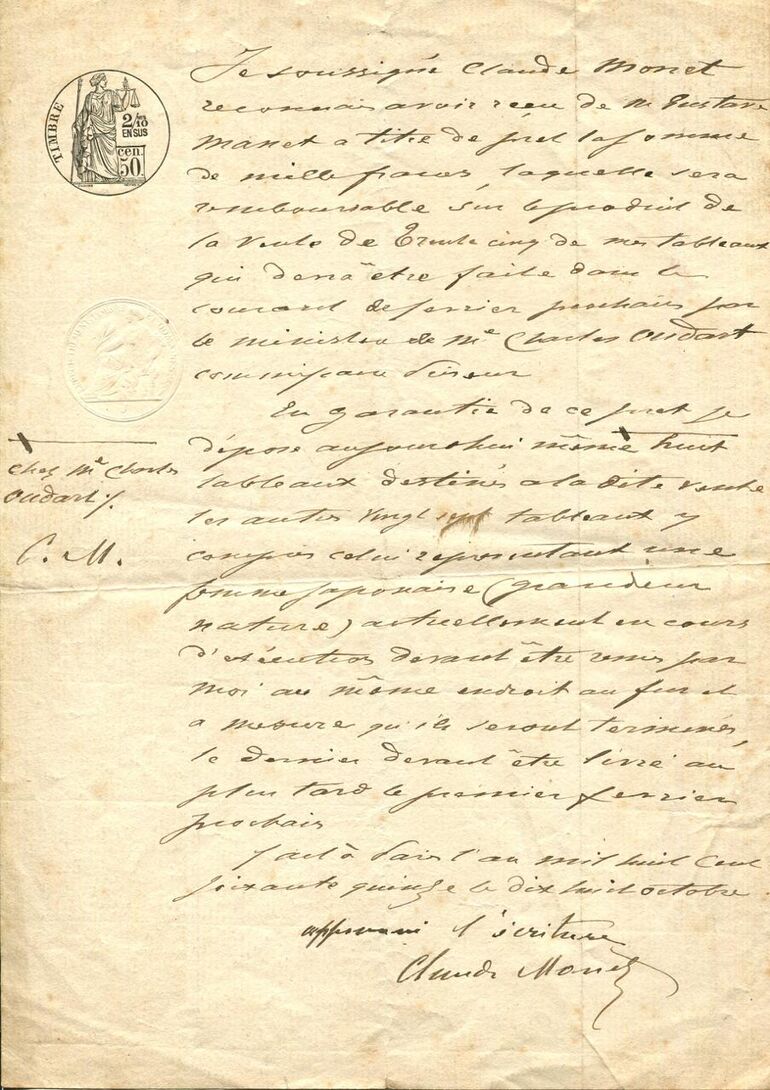 TIMBRE
2/10
EN SUS
cen.
50.
Je soussigné Claude Monet
reconnais avoir reçu de M Gustave
Manet a titre de pret la somme
de mille francs, laquelle sera
remboursable sur le produit de
la vente de Trente cinq de mes tableaux
qui devra être faite dans le
courant de fevrier prochain par
le ministere de Me Charles Oudart
commissaire priseur
En garantie de ce pret je
dépose aujourdhui même huit
tableaux destinés a la dite vente
les autres vingt sept tableaux y
compris celui representant une
femme japonaise (grandeur
nature) actuellement en cours
d'exécution devant être remis par
moi au même endroit au fur et
a mesure qu'ils seront terminés,
le dernier devant être livré au
plus tard le premier fevrier
prochain
fait à Paris l'an mil huit cent
soixante quinze le dix huit octobre
approuvé l'écriture
Claude Monet
chez Me Charles
Oudart
C. M.